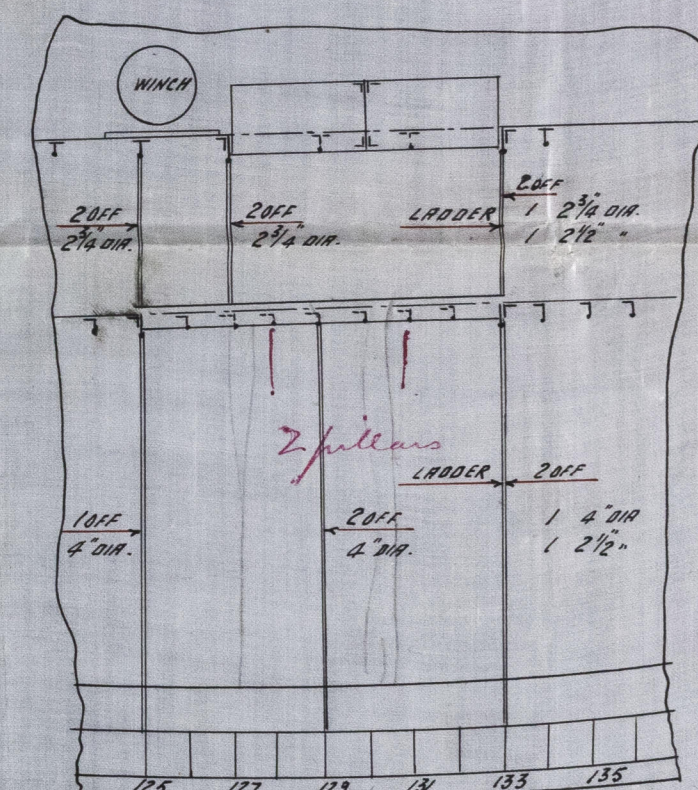 WINCH
2 OFF
2 3/4" DIA.
2 OFF
2 3/4" DIA.
LADDER
2 OFF
1 2 3/4" DIA.
1 2 1/2" "
2 pillars
LADDER
2 OFF
1 4" DIA
1 2 1/2" "
1 OFF
4" DIA.
2 OFF
4" DIA.
125 127 129 131 133 135